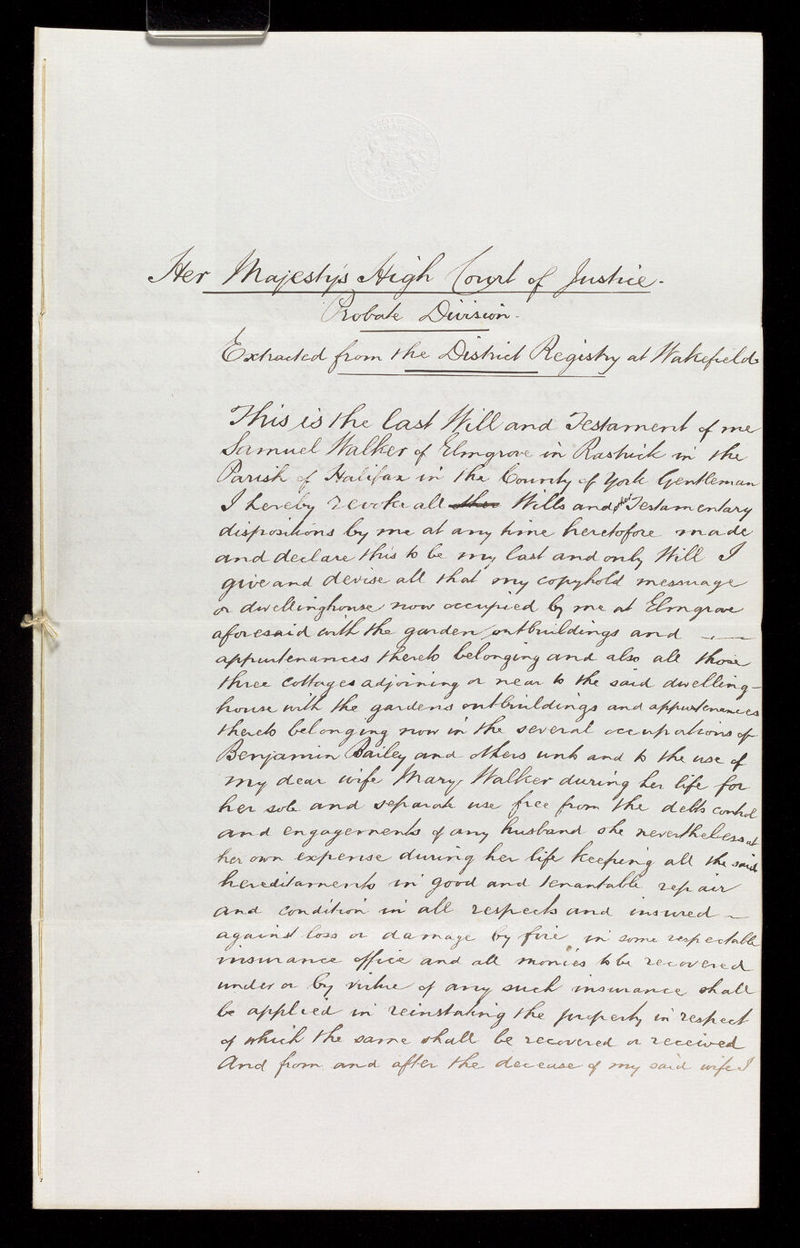 Her Majesty's High Court of Justice.
Probate Division.
Extracted from the District Registry at Wakefield
This is the last Will and Testament of me
Samuel Walker of Elmgrove in Rastrick in the
Parish of Halifax in the County of York Gentleman
I hereby revoke all other Wills and other Testamentary
dispositions by me at any time heretofore made
and declare this to be my last and only Will I
give and devise all that my copyhold messuage
or dwellinghouse now occupied by me at Elmgrove
aforesaid with the garden outbuildings and
appurtenances thereto belonging and also all those
three cottages adjoining or near to the said dwelling-
house with the gardens outbuildings and appurtenances
thereto belonging now in the several occupations of
Benjamin Bailey and others unto and to the use of
my dear wife Mary Walker during her life for
her sole and separate use free from the debts control
and engagements of any husband she nevertheless at
her own expense during her life keeping all the said
hereditaments in good and tenantable repair
and condition in all respects and insured
against loss or damage by fire in some respectable
insurance office and all monies to be recovered
under or by virtue of any such insurance shall
be applied in reinstating the property in respect
of which the same shall be recovered or received
And from and after the decease of my said wife I